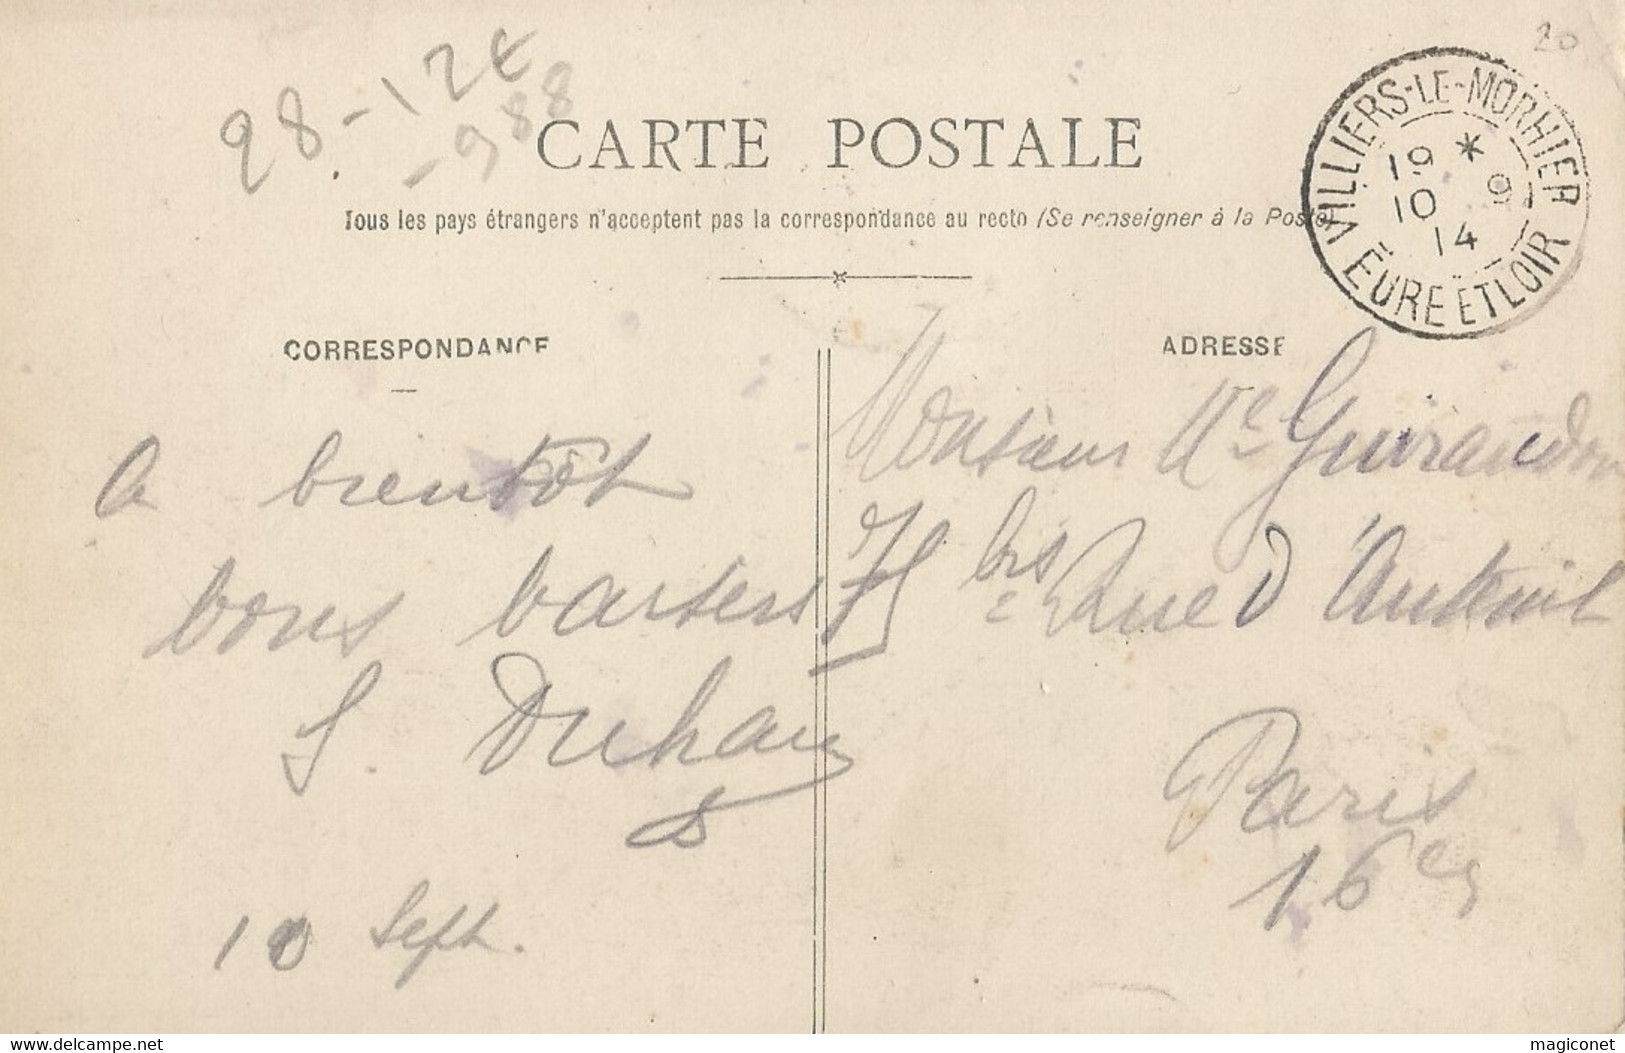 28-12€
-988
20
CARTE POSTALE
Tous les pays étrangers n'acceptent pas la correspondance au recto (Se renseigner à la Poste)
VILLIERS-LE-MORHIER
19 *
10 9
14
EURE ET LOIR
CORRESPONDANCE
ADRESSE
A bientôt
bons baisers
S. Duhau
10 Sept.
Monsieur
bis Rue d'Auteuil
Paris
16e
https://www.delcampe.net
magiconet